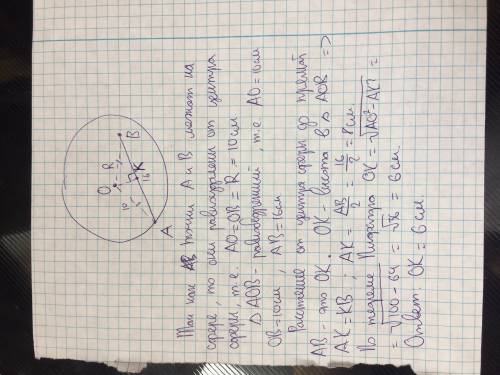 O
R
B
10
K
16
A
Так как AB точки A и B лежат на
сфере, то они равноудалены от центра
сферы, т.е. AO = OB = R = 10 см
△ AOB - равнобедренный, т.е. AO = 10 см
OB = 10 см, AB = 16 см
Расстояние от центра сферы до прямой
AB - это OK. OK - высота в △ AOB =>
AK = KB; AK = AB/2 = 16/2 = 8 см.
По теореме Пифагора OK = √AO² - AK² =
= √100 - 64 = √36 = 6 см.
Ответ: OK = 6 см